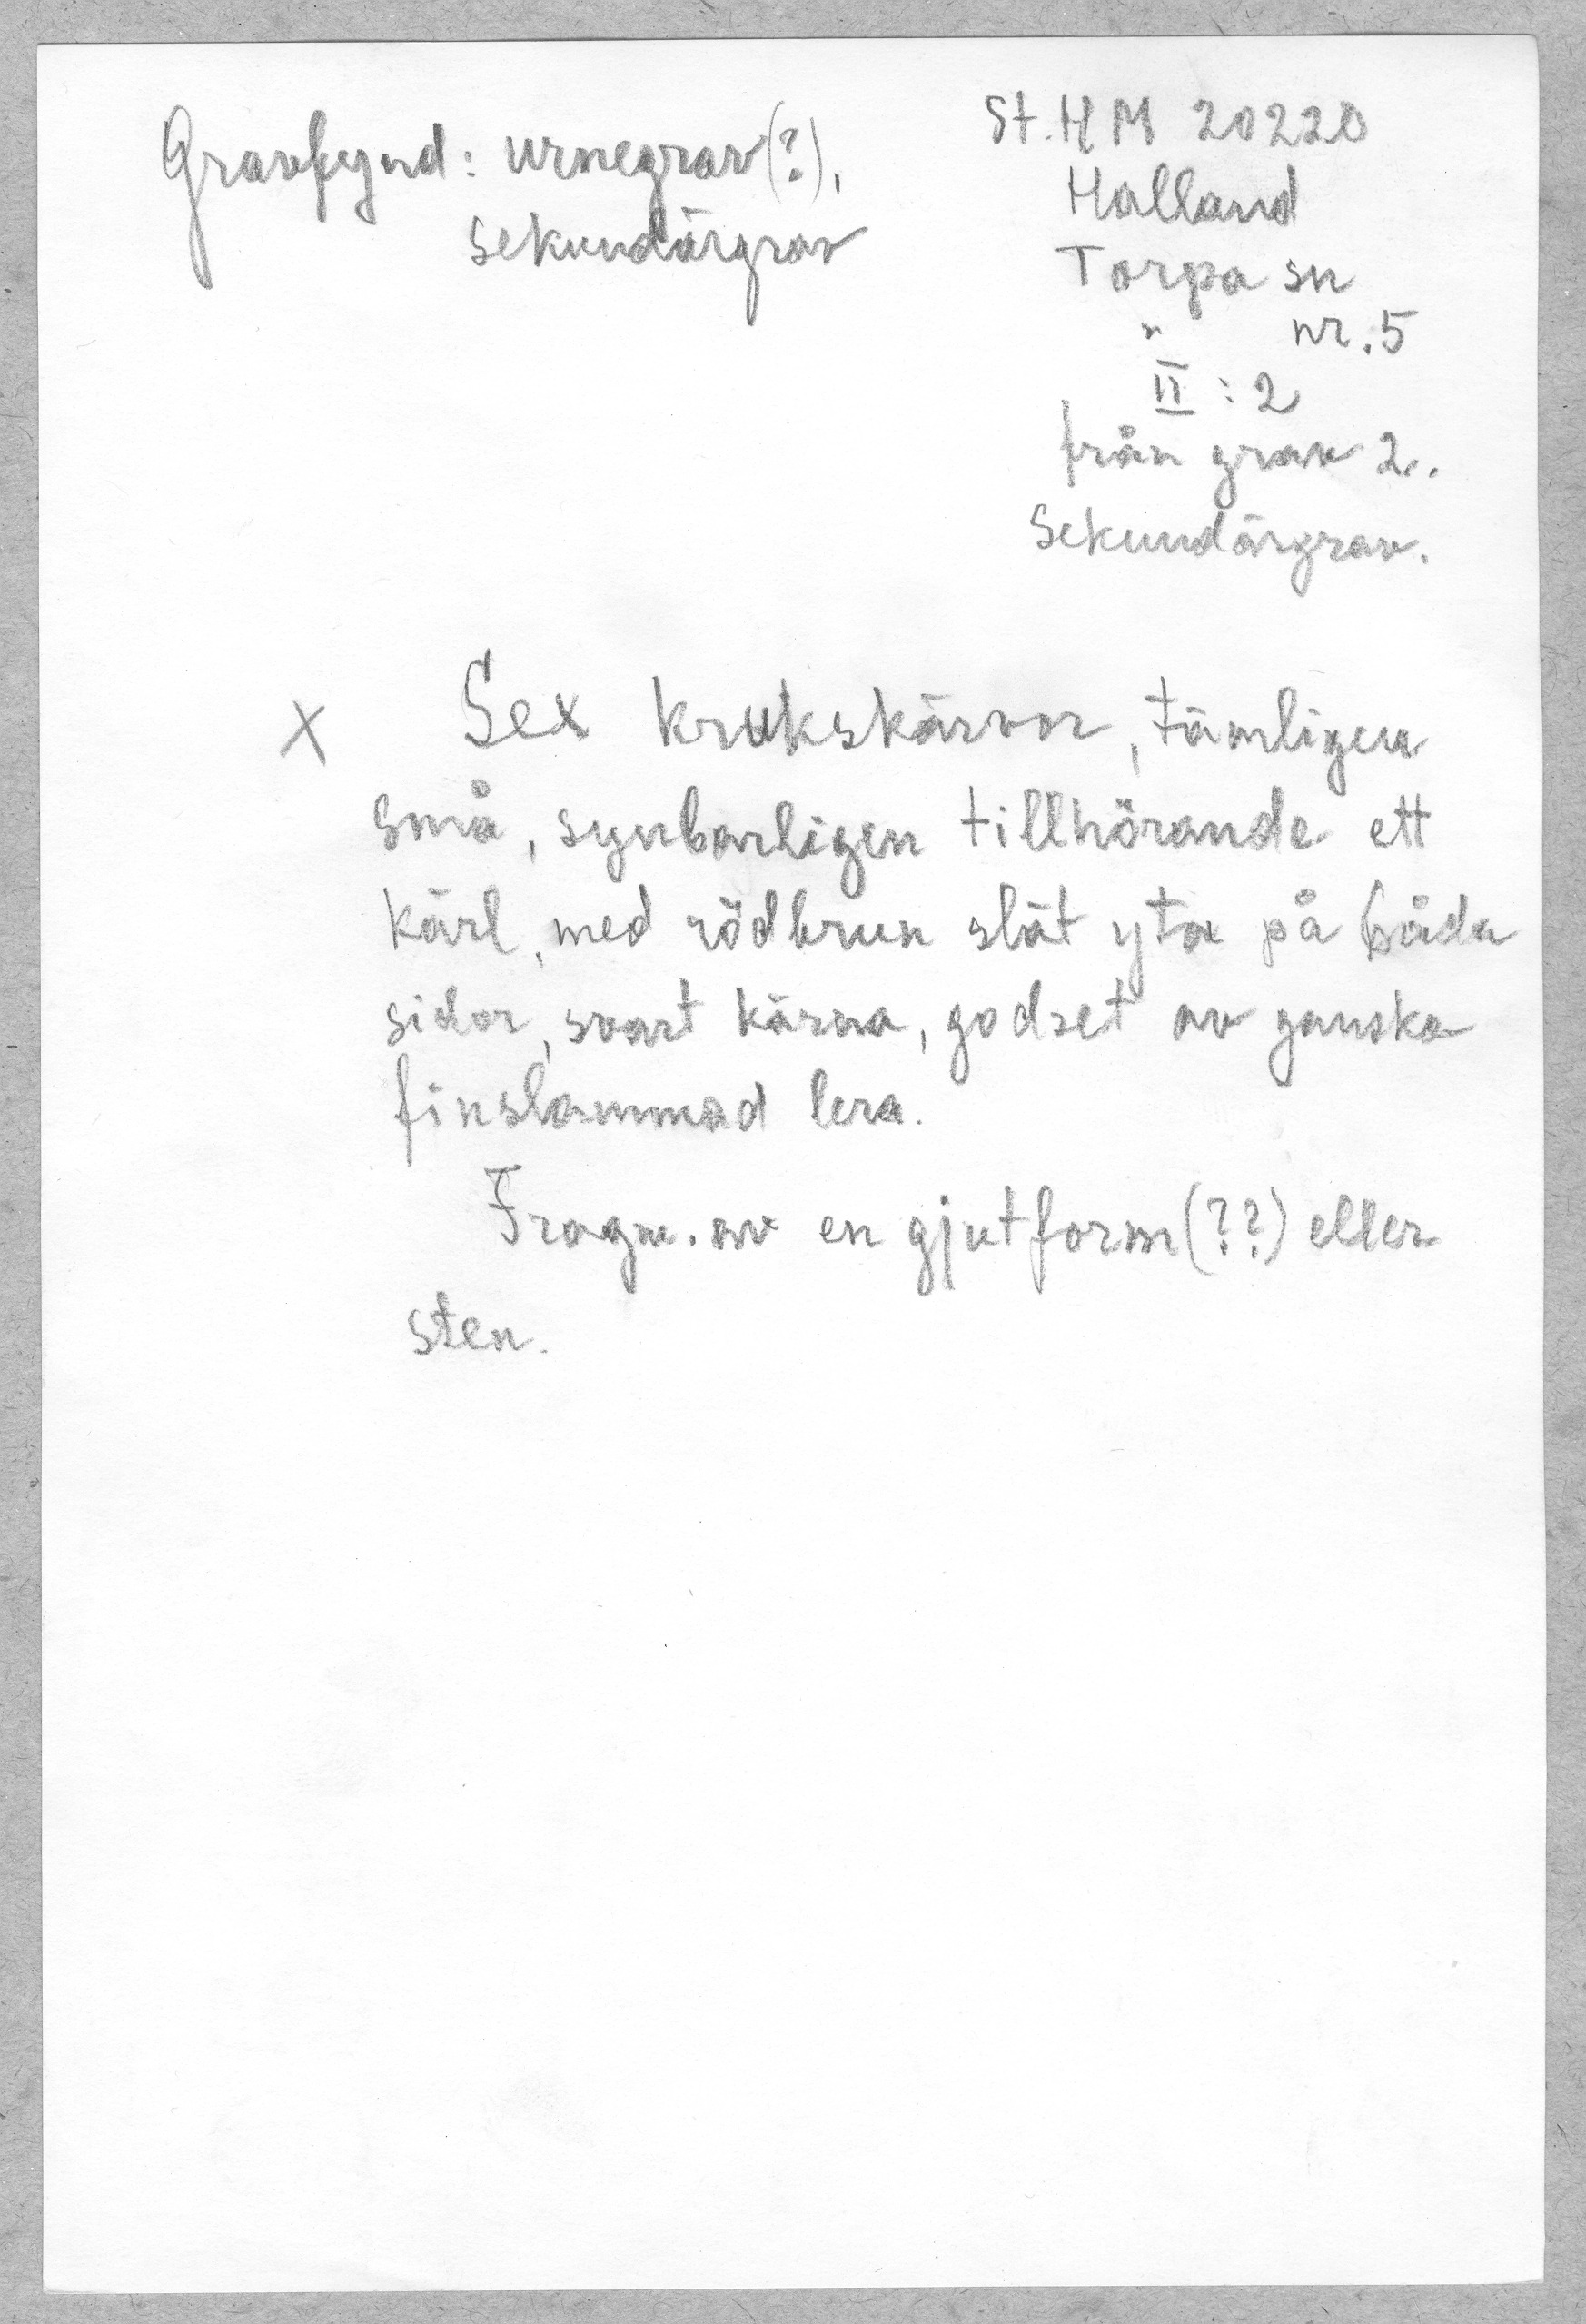 Gravfynd: urnegrav(?),
sekundärgrav
St. H M 20220
Halland
Torpa sn
" nr. 5
II : 2
från grav 2.
Sekundärgrav.
x Sex krukskärvor, tämligen
små, synbarligen tillhörande ett
kärl, med rödbrun slät yta på båda
sidor, svart kärna, godset av ganska
finslammad lera.
Fragm. av en gjutform(??) eller
sten.